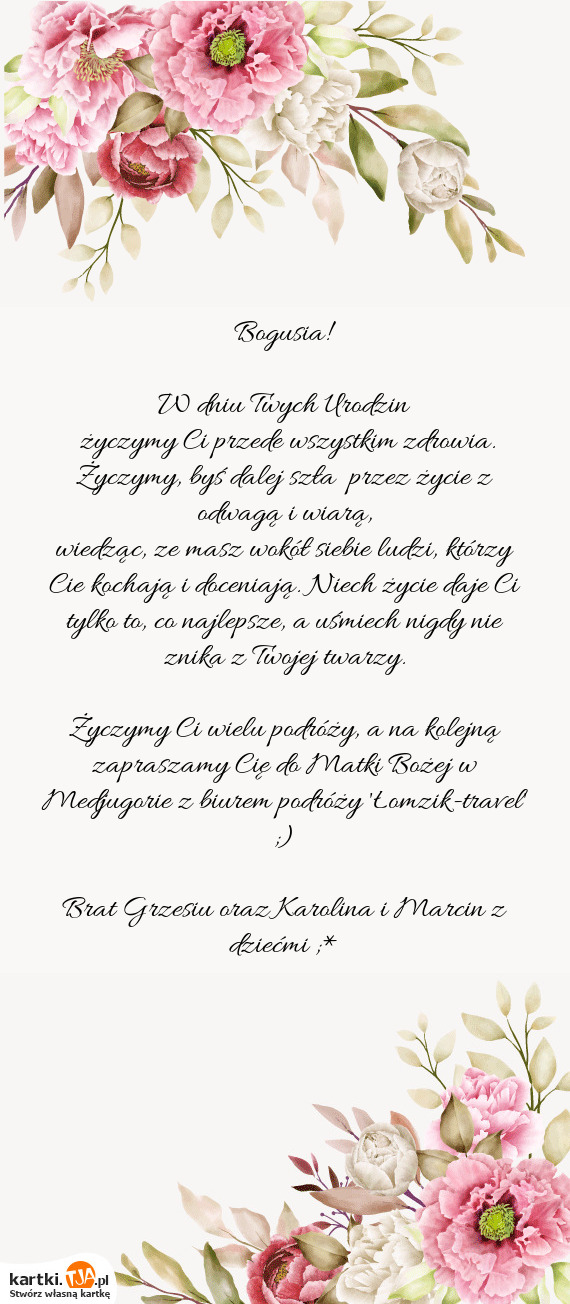 Bogusia!
W dniu Twych Urodzin
życzymy Ci przede wszystkim zdrowia.
Życzymy, byś dalej szła przez życie z
odwagą i wiarą,
wiedząc, ze masz wokół siebie ludzi, którzy
Cie kochają i doceniają. Niech życie daje Ci
tylko to, co najlepsze, a uśmiech nigdy nie
znika z Twojej twarzy.
Życzymy Ci wielu podróży, a na kolejną
zapraszamy Cię do Matki Bożej w
Medjugorie z biurem podróży 'Łomzik-travel'
;)
Brat Grzesiu oraz Karolina i Marcin z
dziećmi ;*
kartki.TJA.pl
Stwórz własną kartkę